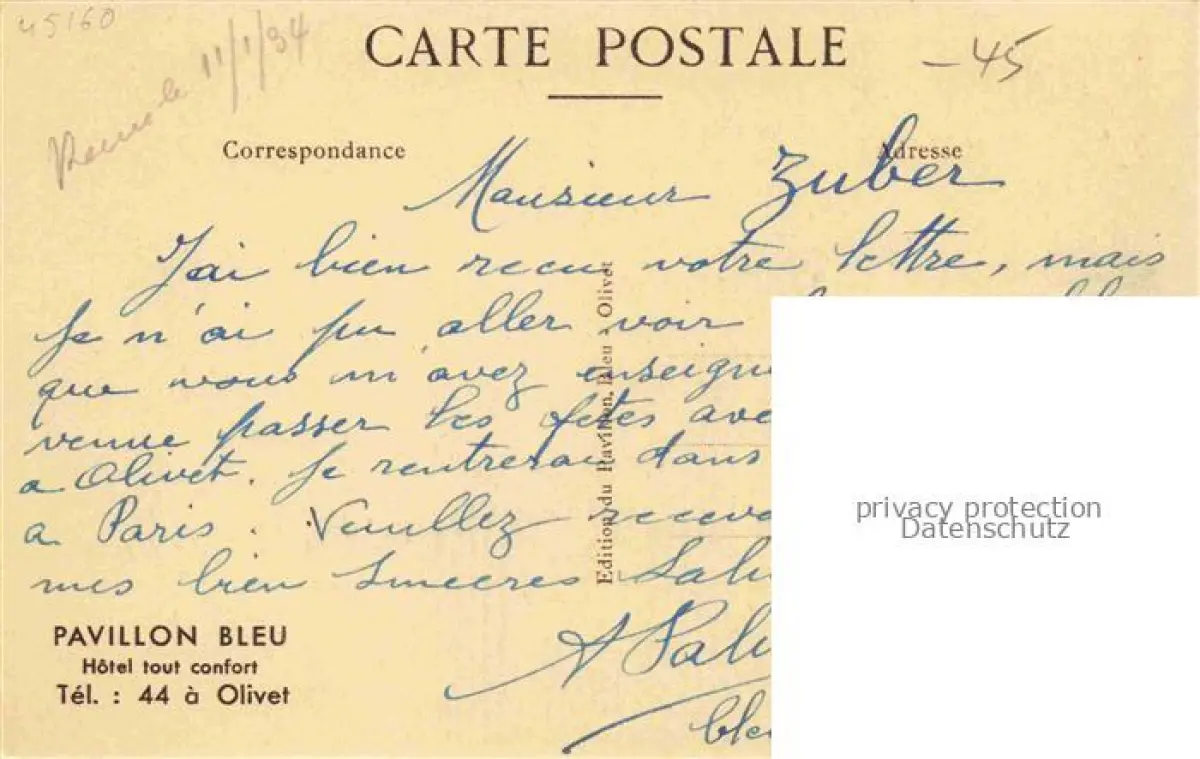 45160
11/1/34
CARTE POSTALE
- 45
Correspondance
Adresse
Monsieur Zuber
J'ai bien recu votre lettre, mais
Je n'ai pu aller voir
que vous m'avez enseigné
venue passer les fêtes ave
a Olivet. Je rentrerai dans
a Paris. Veuillez recevo
mes bien sinceres Salu
A Pali
bleu
Edition du Pavillon Bleu à Olivet
PAVILLON BLEU
Hôtel tout confort
Tél. : 44 à Olivet
privacy protection
Datenschutz